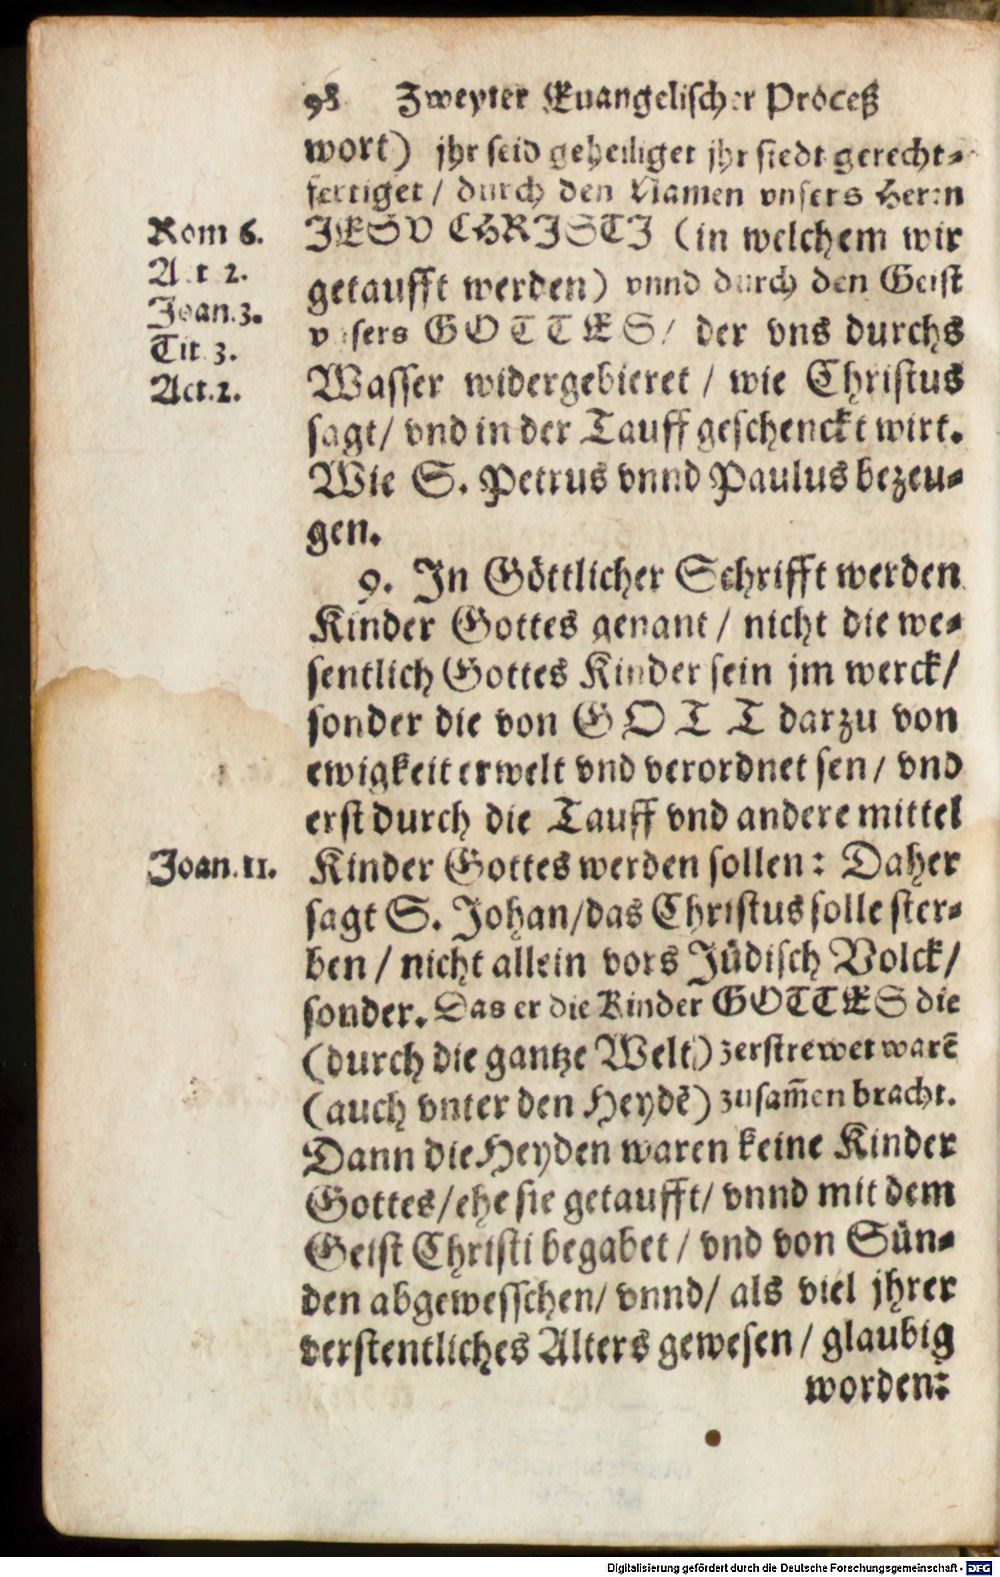 98 Zweyter Euangelischer Proceß
wort) jhr seid geheiliget jhr siedt gerecht-
fertiget / durch den Namen vnsers Herrn
Rom 6.
JESV CHRISTJ (in welchem wir
Act 2.
getaufft werden) vnnd durch den Geist
Joan.3.
vnsers GOTTES/ der vns durchs
Tit 3.
Act.2.
Wasser widergebieret / wie Christus
sagt/ vnd in der Tauff geschenckt wirt.
Wie S. Petrus vnnd Paulus bezeu-
gen.
9. In Göttlicher Schrifft werden
Kinder Gottes genant / nicht die we-
sentlich Gottes Kinder sein jm werck/
sonder die von GOTT darzu von
ewigkeit erwelt vnd verordnet sen / vnd
erst durch die Tauff vnd andere mittel
Joan.11.
Kinder Gottes werden sollen: Daher
sagt S. Johan/das Christus solle ster-
ben / nicht allein vors Jüdisch Volck/
sonder. Das er die Kinder GOTTES die
(durch die gantze Welt) zerstrewet warẽ
(auch vnter den Heydẽ) zusam̃en bracht.
Dann die Heyden waren keine Kinder
Gottes/ehe sie getaufft/ vnnd mit dem
Geist Christi begabet / vnd von Sün-
den abgewesschen/ vnnd/ als viel jhrer
verstentliches Alters gewesen / glaubig
worden:
Digitalisierung gefördert durch die Deutsche Forschungsgemeinschaft - DFG